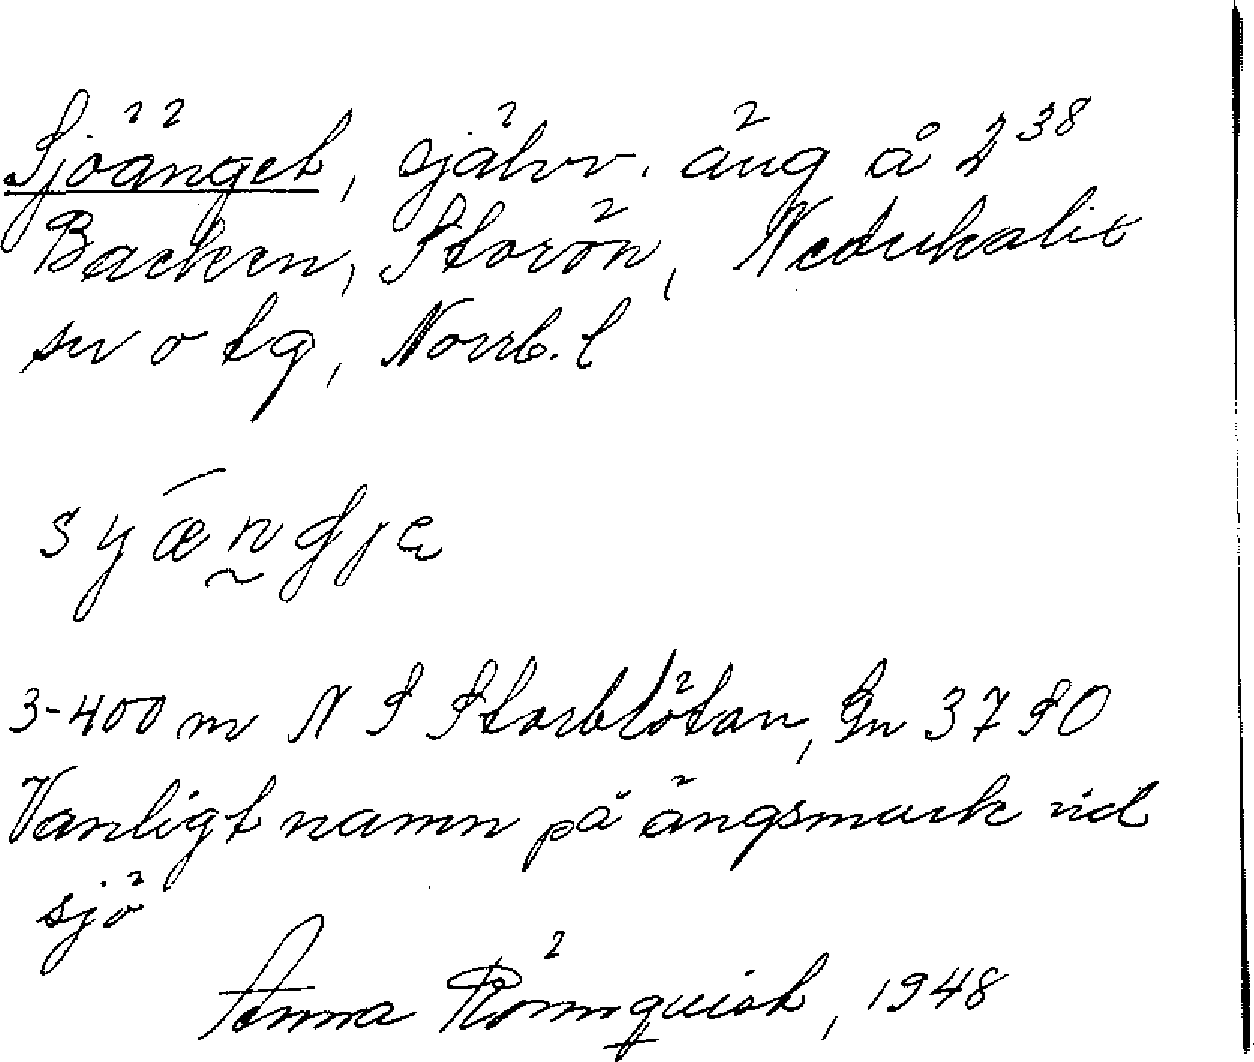 Sjöänget, självv. äng å 2³⁸
Backen, Storön, Nederkalix
sn o tg, Norrb. l
syæ̅n̰gjɛ
3-400 m N S Storblötan, Gn 3790
Vanligt namn på ängsmark vid
sjö
Anna Rönnquist, 1948